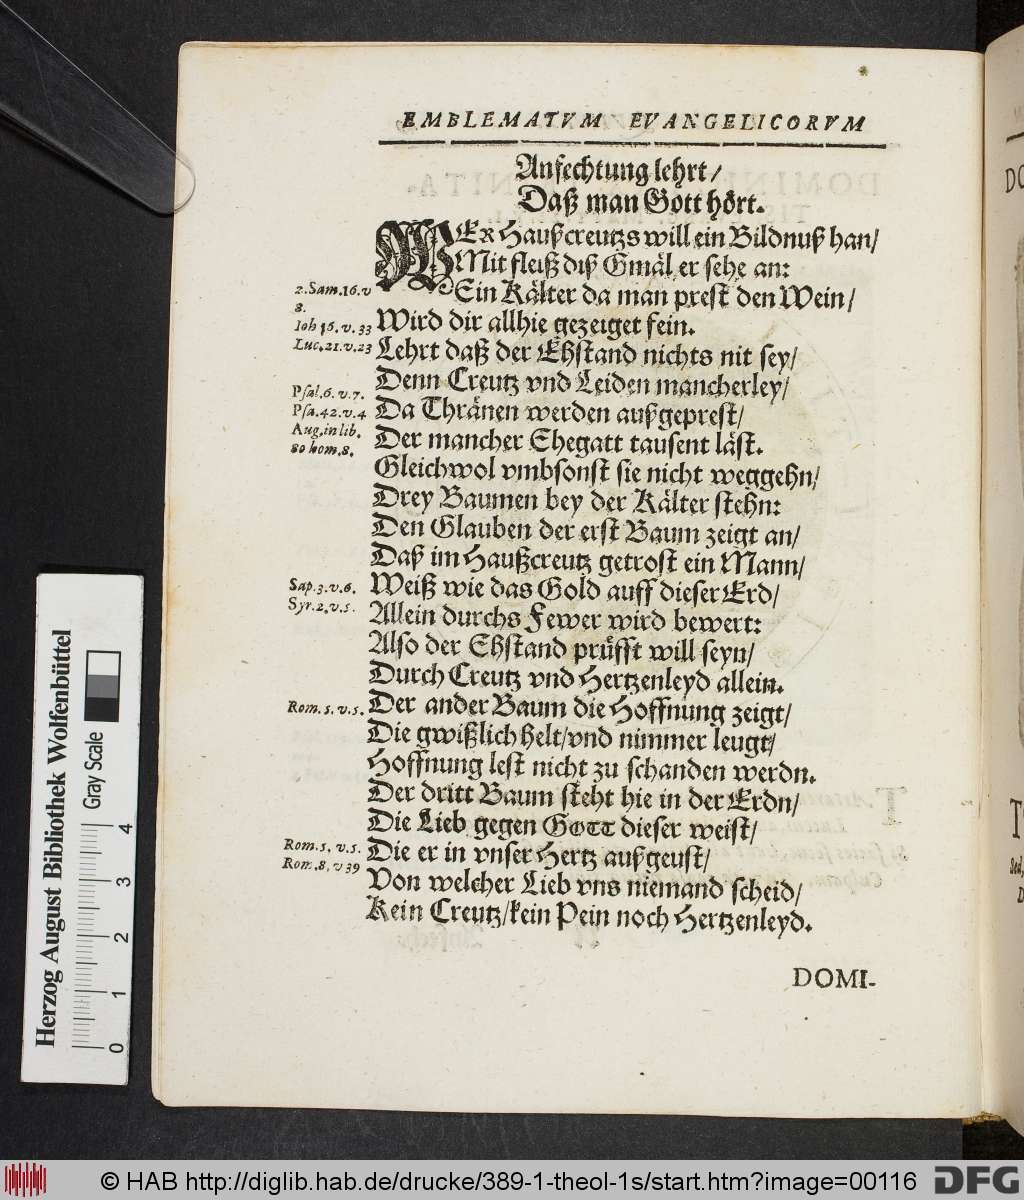 EMBLEMATVM EVANGELICORVM
Anfechtung lehrt/
Daß man Gott hört.
WEr Haußcreutzs will ein Bildnuß han/
Mit fleiß diß Gmäl er sehe an:
Ein Kälter da man prest den Wein/
Wird dir allhie gezeiget fein.
Lehrt daß der Ehstand nichts nit sey/
Denn Creutz vnd Leiden mancherley/
Da Thränen werden außgeprest/
Der mancher Ehegatt tausent läst.
Gleichwol vmbsonst sie nicht weggehn/
Drey Baumen bey der Kälter stehn:
Den Glauben der erst Baum zeigt an/
Daß im Haußcreutz getrost ein Mann/
Weiß wie das Gold auff dieser Erd/
Allein durchs Fewer wird bewert:
Also der Ehstand prüfft will seyn/
Durch Creutz vnd Hertzenleyd allein.
Der ander Baum die Hoffnung zeigt/
Die gwißlich helt/vnd nimmer leugt/
Hoffnung lest nicht zu schanden werdn.
Der dritt Baum steht hie in der Erdn/
Die Lieb gegen GOTT dieser weist/
Die er in vnser Hertz außgeust/
Von welcher Lieb vns niemand scheid/
Kein Creutz/kein Pein noch Hertzenleyd.
2. Sam. 16. v
8.
Ioh 16. v. 33
Luc. 21. v. 23
Psal. 6. v. 7.
Psa. 42. v. 4
Aug. in lib.
80 hom. 8.
Sap. 3. v. 6.
Syr. 2. v. 5.
Rom. 5. v. 5.
Rom. 5. v. 5.
Rom. 8. v 39
DOMI-
Herzog August Bibliothek Wolfenbüttel
Gray Scale
0 1 2 3 4
© HAB http://diglib.hab.de/drucke/389-1-theol-1s/start.htm?image=00116
DFG